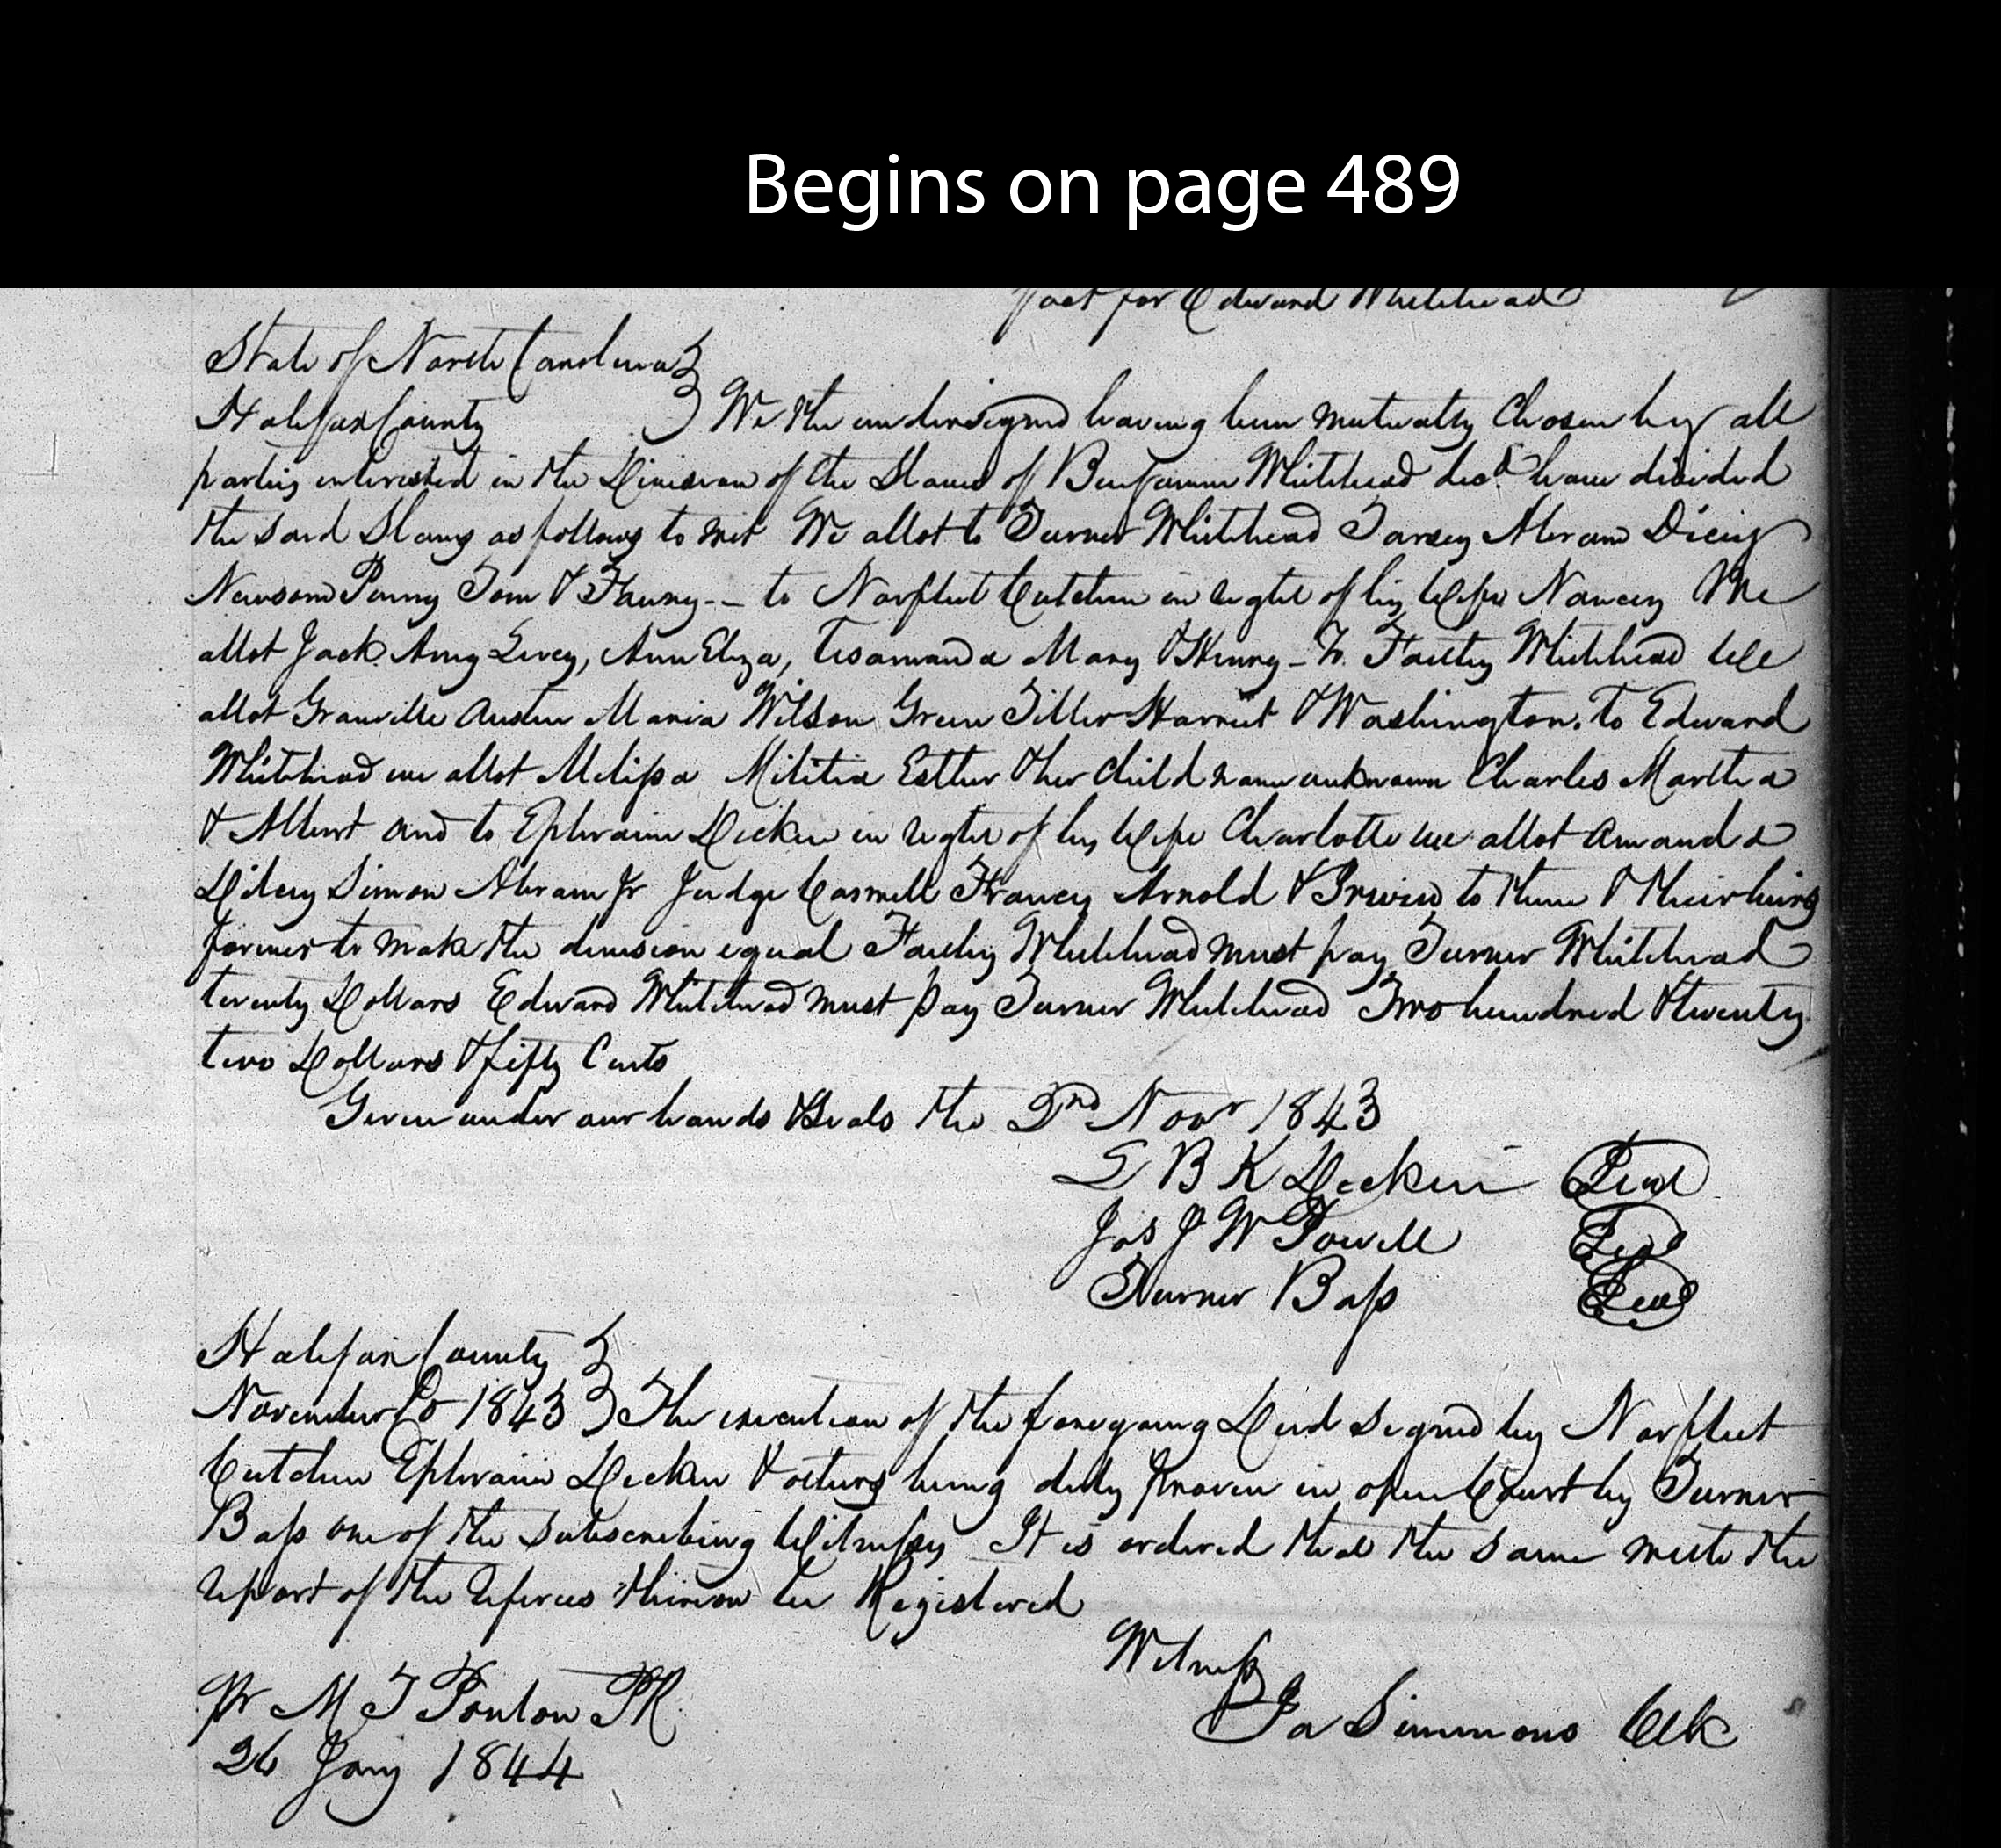 Begins on page 489
fact for Edward Whitehead
State of North Carolina
Halifax County We the undersigned having been mutually Chosen by all
parties interested in the Division of the Slaves of Benjamin Whitehead decd have divided
the said Slaves as follows to wit We allot to Turner Whitehead Tarsey Abram Dicey
Newsom Penny Tom & Fanny -- to Norfleet Cutchin in right of his Wife Nancey We
allot Jack Amy Livey, Ann Eliza, Mary & Henry - To Whitehead We
allot Granville Austin Maria Wilson Green Tiller Harriet & Washington. To Edward
Whitehead we allot Melissa Militia Esther & her child name unknown Charles Martha
& Albert and to Ephraim Dicken in right of his Wife Charlotte we allot Amanda
Dilcey Simon Abram Jr Judge Caswell Francey Arnold & Irwin to them & their heirs
forever to make the division equal Whitehead must pay Turner Whitehead
twenty Dollars Edward Whitehead must pay Turner Whitehead Two hundred & twenty
two Dollars & fifty Cents
Given under our hands & Seals the 2nd Novr 1843
L B K Dicken Seal
Jos J W Powell Seal
Turner Bass Seal
Halifax County
November Co 1843 The execution of the foregoing Deed signed by Norfleet
Cutchin Ephraim Dicken & others being duly proven in open Court by Turner
Bass one of the subscribing Witnesses It is ordered that the same with the
report of the referees thereon be Registered
Witness
Pr M T Ponton PR Ja Simmons Clk
26 Jany 1844